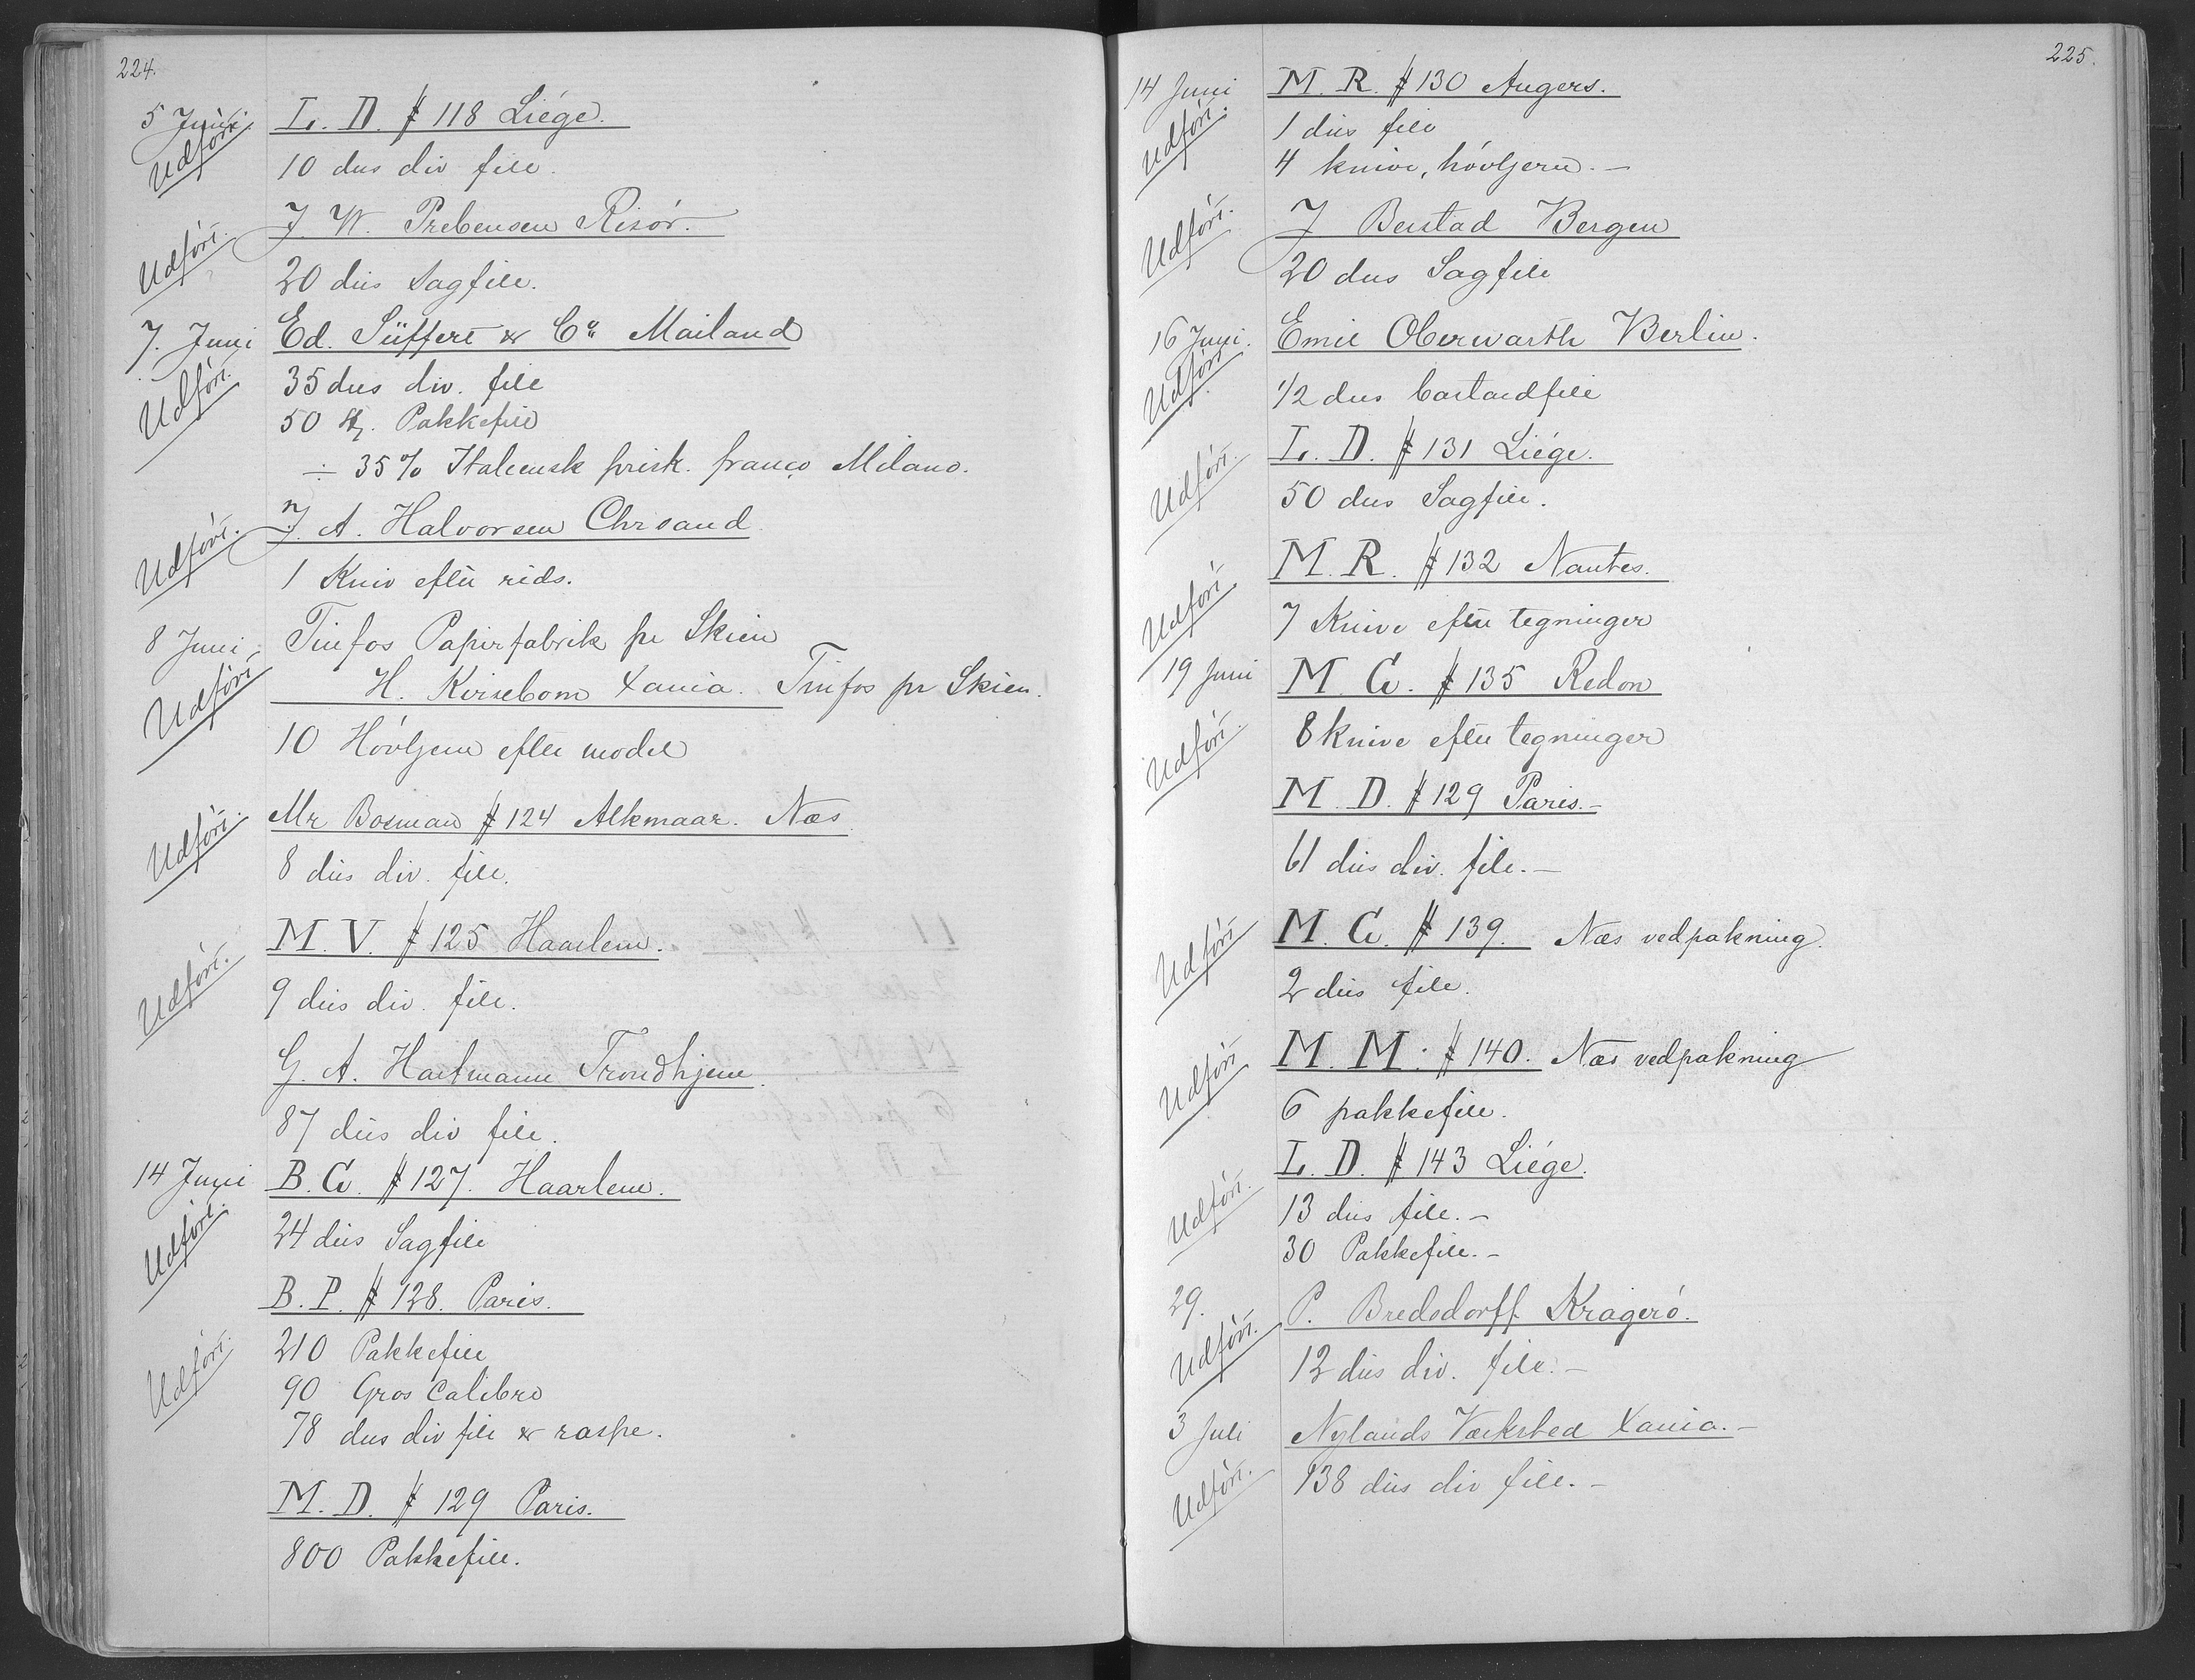 224.
5 Juni L. D. # 118 Liége.
Udført.
10 dus div file.
J. W. Prebensen Risør.
Udført.
20 dus Sagfile.
7. Juni Ed. Süffert & Co Mailand
Udført.
35 dus div. file
50 st. Pakkefile
÷ 35% Italiensk prisk. franco Milano.
J. A. Halvorsen Chrsand
Udført.
1 Kniv efter rids.
8 Juni Tinfos Papirfabrik pr Skien
Udført
H. Kvisebom Xania. Tinfos pr Skien.
10 Høvljern efter model
Mr Bosman # 124 Alkmaar. Næs
Udført.
8 dus div. file.
M. V. # 125 Haarlem.
Udført.
9 dus div. file.
G. A. Hartmann Trondhjem.
87 dus div file.
14 Juni B. G. # 127. Haarlem.
Udført.
24 dus Sagfile
B. P. # 128. Paris.
Udført
210 Pakkefile
90 Gros Calibre
78 dus div file & raspe.
M. D. # 129 Paris.
800 Pakkefile.
225.
14 Juni M. R. # 130 Angers.
Udført.
1 dus file
4 knive, høvljern. —
J Beistad Bergen
Udført.
20 dus Sagfile
16 Juni. Emil Oberwarth Berlin.
Udført.
1/2 dus bastardfile
L. D. # 131 Liége.
Udført.
50 dus Sagfile.
M. R. # 132 Nantes.
Udført
7 Knive efter tegninger
19 Juni M. G. # 135 Redon
Udført.
8 knive efter tegninger
M. D. # 129 Paris. —
61 dus div. file. —
M. G. # 139. Næs vedpakning.
Udført
2 dus file.
M. M. # 140. Næs vedpakning
Udført
6 pakkefile.
L. D. # 143 Liége.
Udført.
13 dus file. —
30 Pakkefile. —
29. P. Bredsdorff Kragerø.
Udført.
12 dus div. file. —
3 Juli Nylands Værksted Xania. —
Udført.
138 dus div file. —